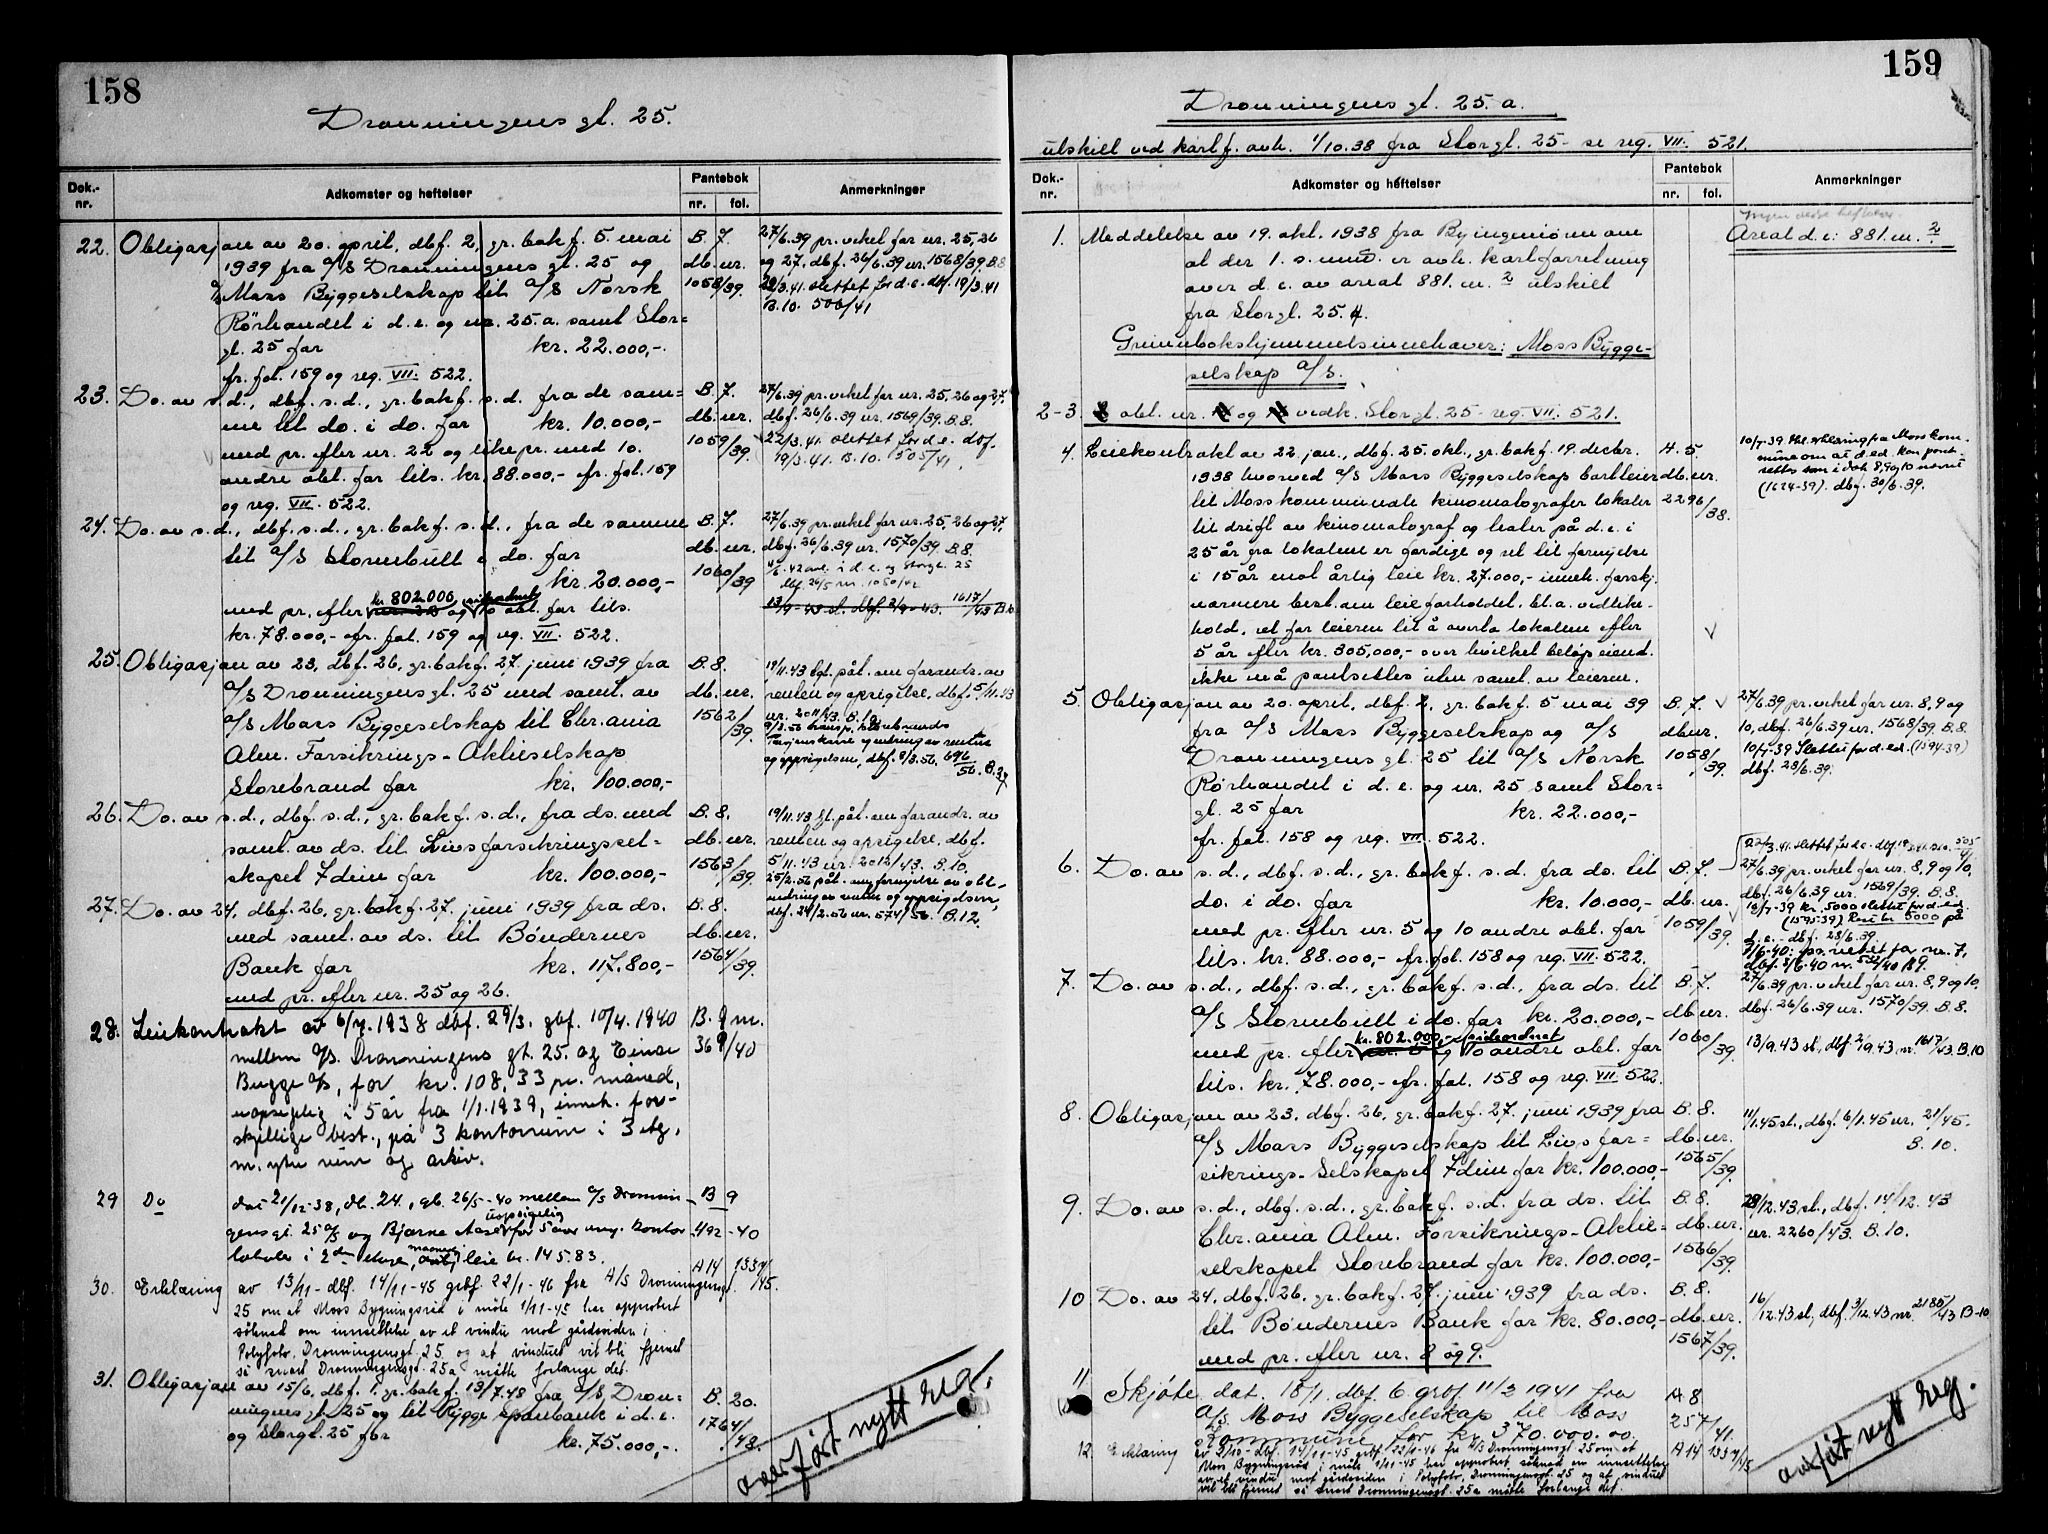 158
Dronningens gt. 25.
Dok.-
nr.
Adkomster og heftelser
Pantebok
nr. fol.
Anmerkninger
22. Obligasjon av 20. april, dbf. 2, gr.bok f. 5. mai
1939 fra A/S Dronningens gt. 25 og
A/S Moss Byggeselskap til A/S Norsk
Rörhandel i d.e. og nr. 25.a. samt Stor=
gt. 25 for kr. 22.000,-.
fr. fol. 159 og reg. VII. 522.
B. 7.
db.nr.
1058/39.
27/6.39 pr. veket for nr. 25, 26
og 27, dbf. 26/6.39 nr. 1568/39. B.8
22/3.41. slettet for d.e. dbf. 19/3.41
B.10. 506/41
23. Do. av s.d., dbf. s.d., gr.bok f. s.d. fra de sam=
me til do. i do. for kr. 10.000,-
med pr. efter nr. 22 og like pr. med 10.
andre obl. for tils. kr. 88.000,- fr. fol. 159
og reg. VII. 522.
B. 7.
db.nr.
1059/39.
27/6.39 pr. veket for nr. 25, 26 og 27,
dbf. 26/6.39 nr. 1569/39. B.8.
22/3.41. slettet for d.e. dbf.
19/3.41. B.10. 505/41.
24. Do. av s.d., dbf. s.d., gr.bok f. s.d., fra de samme
til A/S Stormbull i do. for
kr. 20.000,-
kr. 802.000 sideordnet
med pr. efter nr. 23 og 10 obl. for tils.
kr. 78.000,- fr. fol. 159 og reg. VII. 522.
B. 7.
db.nr.
1060/39
27/6.39 pr. veket for nr. 25, 26 og 27,
dbf. 26/6.39 nr. 1570/39. B.8.
i d.e. og Storgt. 25
13/9-43 sl. dbf. 2/9-43. 1617/43 B.10
25. Obligasjon av 23, dbf. 26, gr.bok f. 27. juni 1939 fra
A/S Dronningens gt. 25 med samt. av
A/S Moss Byggeselskap til Chr.ania
Alm. Forsikrings-Aktieselskap
Storebrand for kr. 100.000,-
B. 8.
db.nr.
1562/39.
19/11.43 påt. om forandr. av
renten og opsigelse, dbf. 5/11.43
nr. 2011/43. B.10.
og endring av rente
og oppsigelsen, dbf. 8/3.56, 696/56.
26. Do. av s.d., dbf. s.d., gr.bok f. s.d., fra ds. med
samt. av ds. til Livsforsikringssel=
skapet Idun for kr. 100.000,-
B. 8.
db.nr.
1563/39.
19/11.43 påt. om forandr. av
renten og opsigelse, dbf.
5/11.43 nr. 2012/43. B.10.
25/2.56 påt. om fornyelse av obl.
endring av rente og oppsigelsen,
dbf. 24/2.56 nr. 574/56. B.12.
27. Do. av 24, dbf. 26, gr.bok f. 27. juni 1939 fra ds.
med samt. av ds. til Bøndernes
Bank for kr. 117.800,-
med pr. efter nr. 25 og 26.
B. 8.
db.nr.
1564/39.
28. Leiekontrakt av 6/7.1938 dbf. 29/3. gbf. 10/4. 1940
mellem A/S. Dronningens gt. 25. og Einar
Bugge A/S, for kr. 108,33 pr. måned,
uopsigelig i 5 år fra 1/1.1939, inneh. for-
skjellige best., på 3 kontorrum i 3 etg.
m. ytre rum og arkiv.
B. 9 nr.
369/40
29 Do dat 21/12-38, db. 24., gb. 26/5-40 mellem A/S Dronnin-
gensgt. 25 A/S og Bjarne Aase uopsigelig for 5 aar ang. kontor
lokale i 2den etage, leie kr. 145.83.
B 9
492-40
30. Erklæring av 13/11- dbf. 14/11-45 grbf. 22/1-46 fra A/S Dronningensgt.
25 om at Moss Bygningsråd i møte 1/11-45 har approbert
søknad om innsettelse av et vindu mot gårdssiden i
Polyfoto, Dronningensgt. 25. og at vinduet vil bli fjernet
så snart Dronningensgt. 25a måtte forlange det.
A 14 1337/45.
31. Obligasjon av 15/6, dbf. 1. gr.bok f. 13/7.48 fra A/S Dron-
ningens gt. 25 og til Rygge Sparebank i d.e.
og Storgt. 25 for kr. 75.000,-.
B. 20.
1764/48.
overført nytt reg.
159
Dronningens gt. 25.a.
utskilt ved kartf. avh. 1/10.38 fra Storgt. 25- se reg. VII. 521.
Dok.-
nr.
Adkomster og heftelser
Pantebok
nr. fol.
Anmerkninger
1. Meddelelse av 19. okt. 1938 fra Byingeniøren om
at der 1. s. mnd. er avh. kartforretning
over d.e. av areal 881. m.2 utskilt
fra Storgt. 25.
Grunnbokshjemmelsinnehaver: Moss Bygge-
selskap A/S.
Areal d.e: 881. m.2
2-3. obl. nr. og vedk. Storgt. 25- reg. VII. 521.
4. Leiekontrakt av 22. jan., dbf. 25. okt., gr.bok f. 19. decbr.
1938 hvorved A/S Moss Byggeselskap bortleier
til Moss kommunale kinomatografer lokaler
til drift av kinomatograf og teater på d.e. i
25 år fra lokalene er ferdige og ret til fornyelse
i 15 år mot årlig leie kr. 27.000,- inneh. forskj.
nærmere best. om leieforholdet, bl.a. vedlike-
hold, ret for leieren til å overta lokalene efter
5 år efter kr. 305,000,- over hvilket beløp eiend.
ikke må pantsettes uten samt. av leieren.
A. 5.
db.nr.
2296/38.
10/7-39 erklæring fra Moss kom-
mune om at d.ed. kan pant-
settes som i dok 8, 9 og 10 nevnt
(1624-39). dbf. 30/6.39.
5. Obligasjon av 20. april, dbf. 2, gr.bok f. 5 mai 39
fra A/S Moss Byggeselskap og A/S
Dronningens gt. 25 til A/S Norsk
Rørhandel i d.e. og nr. 25 samt Stor=
gt. 25 for kr. 22.000,-
fr. fol. 158 og reg. VII. 522.
B. 7.
db.nr.
1058/39.
27/6.39 pr. veket for nr. 8, 9 og
10, dbf. 26/6.39 nr. 1568/39. B.8.
10/7-39 Slettet for d.ed. (1594-39)
dbf. 28/6.39.
6. Do. av s.d., dbf. s.d., gr.bok f. s.d. fra ds. til
do. i do. for kr. 10.000,-
med pr. efter nr. 5 og 10 andre obl. for
tils. kr. 88.000,- fr. fol. 158 og reg. VII. 522.
B. 7.
db.nr.
1059/39.
22/3.41. slettet for d.e. dbf. 19/3.41. B.10. 505/41
27/6.39 pr. veket for nr. 8, 9 og 10,
dbf. 26/6.39 nr. 1569/39. B.8.
10/7-39 kr. 5000 slettet for d.ed.
(1595-39) Rest kr 5000 på
d.e. - dbf. 28/6.39.
7. Do. av s.d., dbf. s.d., gr.bok f. s.d., fra ds. til
A/S Stormbull i do. for kr. 20.000,-
kr. 802.000,- sideordnet
med pr. efter nr. 6 og 10 andre obl. for
tils. kr. 78.000,- fr. fol. 158 og reg. VII 522.
B. 7.
db.nr.
1060/39.
27/6.39 pr. veket for nr. 8, 9 og 10,
dbf. 26/6.39 nr. 1570/39. B.8.
13/9.43 sl., dbf. 2/9.43. nr. 1617/43. B.10
8. Obligasjon av 23. dbf. 26, gr.bok f. 27. juni 1939 fra
A/S Moss Byggeselskap til Livs for=
sikrings-Selskapet Idun for kr. 100.000,-
B. 8.
db.nr.
1565/39.
11/1.45 sl., dbf. 6/1.45 nr. 21/45.
B. 10.
9. Do. av s.d., dbf. s.d., gr.bok f. s.d. fra ds. til
Chr.ania Alm. Forsikrings-Aktie=
selskapet Storebrand for kr. 100.000,-
B. 8.
db.nr.
1566/39.
28/12.43 sl., dbf. 14/12. 43
nr. 2260/43. B. 10.
10 Do. av 24, dbf. 26. gr.bok f. 27. juni 1939 fra ds.
til Bøndernes Bank for kr. 80.000,-
med pr. efter nr. 8 og 9.
B. 8.
db.nr.
1567/39.
16/12.43 sl., dbf. 3/12.43 nr. 2185/43 B-10
11 Skjøte dat. 18/1. dbf. 6 grbf 11/3 1941 fra
A/S. Moss Byggeselskap til Moss
Kommune for kr. 370.000.00.
A 8
257/41.
12. Erklæring av dbf. 14/11-45 grbf. 22/1-46 fra A/S Dronningensgt 25 om at
Moss Bygningsråd i møte 1/11-45 har approbert søknad om innsettelse
av et vindu mot gårdssiden i Polyfoto, Dronningensgt. 25 og at vinduet
vil bli fjernet så snart Dronningensgt. 25a måtte forlange det.
A 14 1337/45
overført nytt reg.